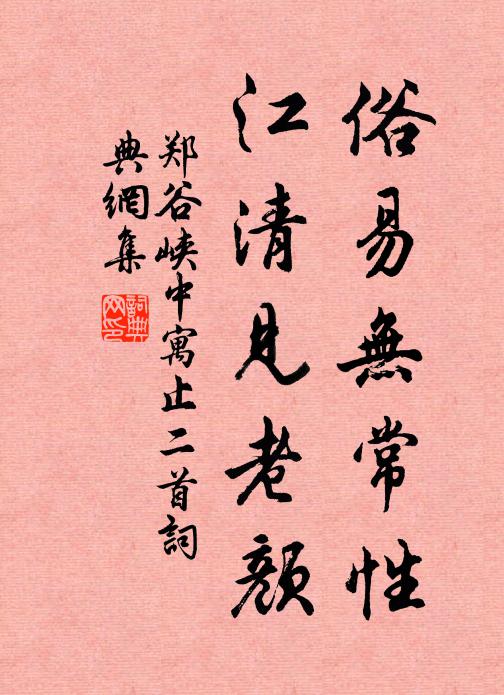 俗易無常性
江清見老顏
郑谷峡中寓止二首詞
典網集
詞典网印